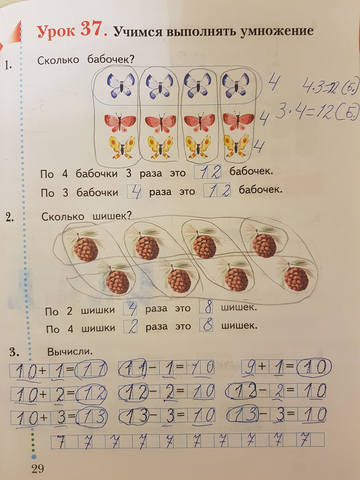 Урок 37. Учимся выполнять умножение
1. Сколько бабочек?
4 4·3=12 (б.)
4 3·4=12 (б.)
4
По 4 бабочки 3 раза это 12 бабочек.
По 3 бабочки 4 раза это 12 бабочек.
2. Сколько шишек?
По 2 шишки 4 раза это 8 шишек.
По 4 шишки 2 раза это 8 шишек.
3. Вычисли.
10+1=11 11-1=10 9+1=10
10+2=12 12-2=10 12-2=10
10+3=13 13-3=10 13-3=10
7 7 7 7 7 7 7 7 7 7
29